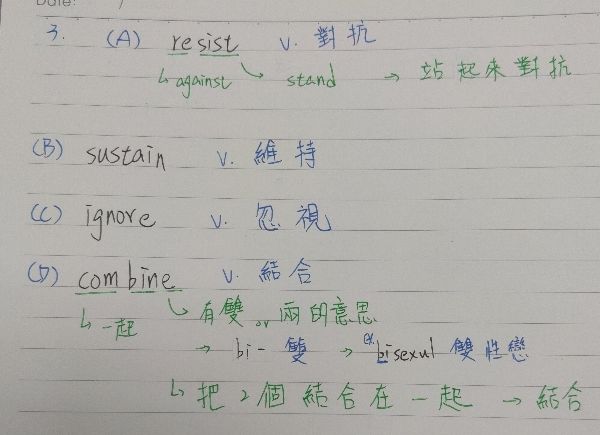 Date: /
3. (A) resist v. 對抗
↳ against ↘ stand → 站起來對抗
(B) sustain v. 維持
(C) ignore v. 忽視
(D) combine v. 結合
↳ 一起 ↘ 有雙 or 兩的意思
→ bi- 雙 → ex. bisexul 雙性戀
↳ 把2個結合在一起 → 結合